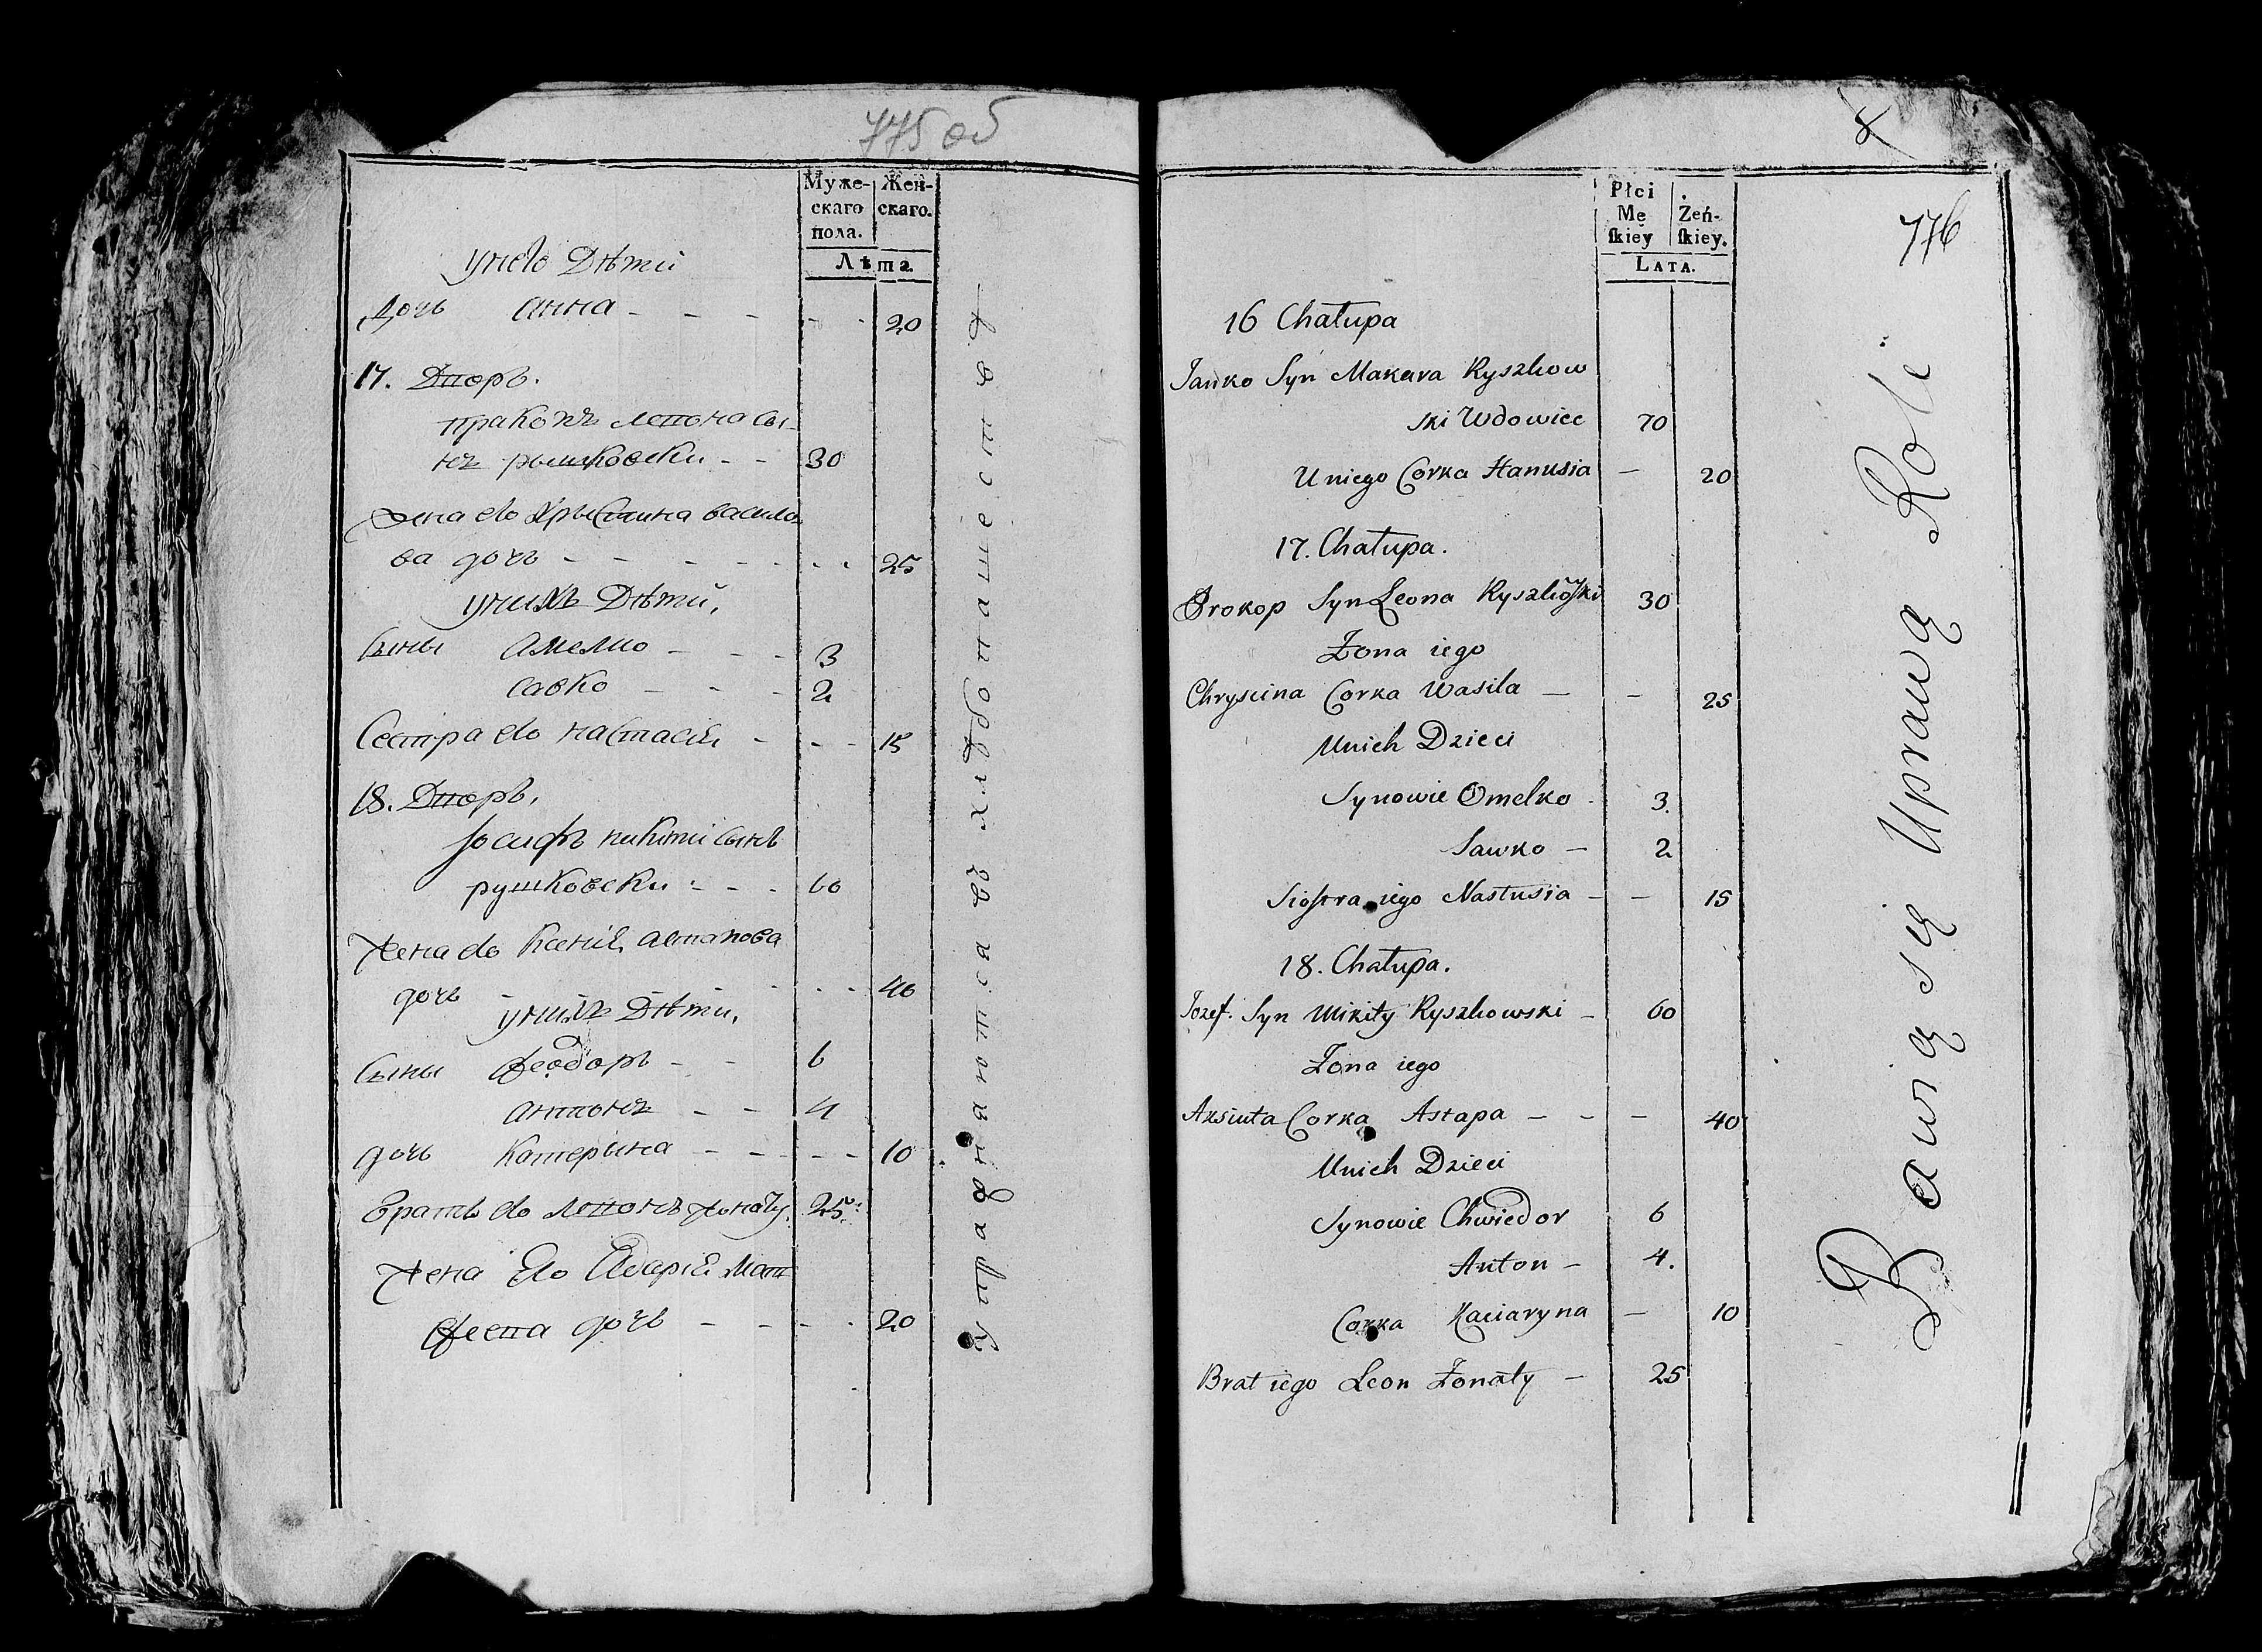 775 об
Муже-
скаго
пола.
Жен-
скаго.
Лѣта.
унего Дѣти
Дочь Анна - - - - - 20
17. Дворъ.
Пракопъ Левона сы-
нъ рышковски - - 30
Жена его Хрыстина васило
ва дочь - - - - - - 25
унихъ Дѣти,
Сыны Амелко - - - 3
Савко - - - 2
Сестра его настасія - - - 15
18. Дворъ,
Іосифъ никити сынъ
рушковски - - - 60
Жена его Ксенія астапова
дочь - - - - - - 40
унихъ Дѣти,
Сыны Феодоръ - - 6
антонъ - - 4
дочь Катерына - - - - - 10
Братъ его Левонъ жонату. 25.
Жена его Адарія Мат
феева дочь - - - - 20
8
776
Płci
Mę
ſkiey
Żeń-
ſkiey.
LATA.
16 Chałupa
Janko Syn Makara Ryszkow
ski Wdowiec 70
U niego Corka Hanusia — 20
17. Chałupa.
Prokop Syn Leona Ryszkoſki 30
Żona iego
Chryscina Corka Wasila — — 25
Unich Dzieci
Synowie Omelko - 3
Sawko — 2
Sioſtra iego Nastusia - — 15
18. Chałupa.
Jozef. Syn Mikity Ryszkowski - 60
Żona iego
Aksiuta Corka Astapa — - — 40
Unich Dzieci
Synowie Chwiedor 6
Anton - 4.
Corka Kaciaryna — 10
Brat iego Leon Żonaty — 25
Bawią się Uprawą Roli